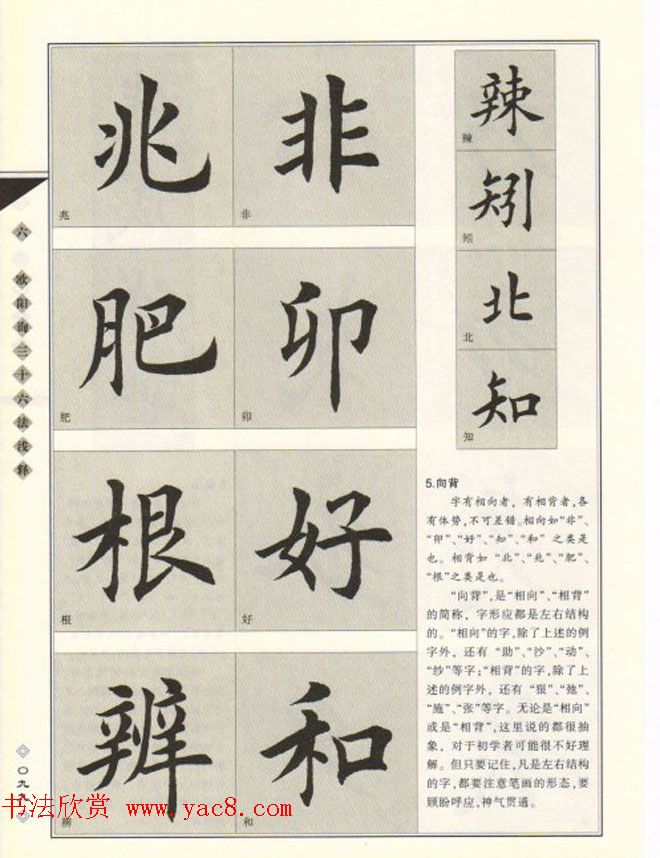 六 欧阳询三十六法浅释
〇九九
兆
兆
非
非
肥
肥
卯
卯
根
根
好
好
辨
和
和
辣
辣
矧
北
北
知
知
5.向背
字有相向者，有相背者，各
有体势，不可差错。相向如“非”、
“卯”、“好”、“知”、“和”之类是
也。相背如“北”、“兆”、“肥”、
“根”之类是也。
“向背”，是“相向”、“相背”
的简称，字形应都是左右结构
的。“相向”的字，除了上述的例
字外，还有“助”、“沙”、“动”、
“纱”等字；“相背”的字，除了上
述的例字外，还有“狠”、“弛”、
“施”、“张”等字。无论是“相向”
或是“相背”，这里说的都很抽
象，对于初学者可能很不好理
解。但只要记住，凡是左右结构
的字，都要注意笔画的形态，要
顾盼呼应，神气贯通。
书法欣赏 www.yac8.com